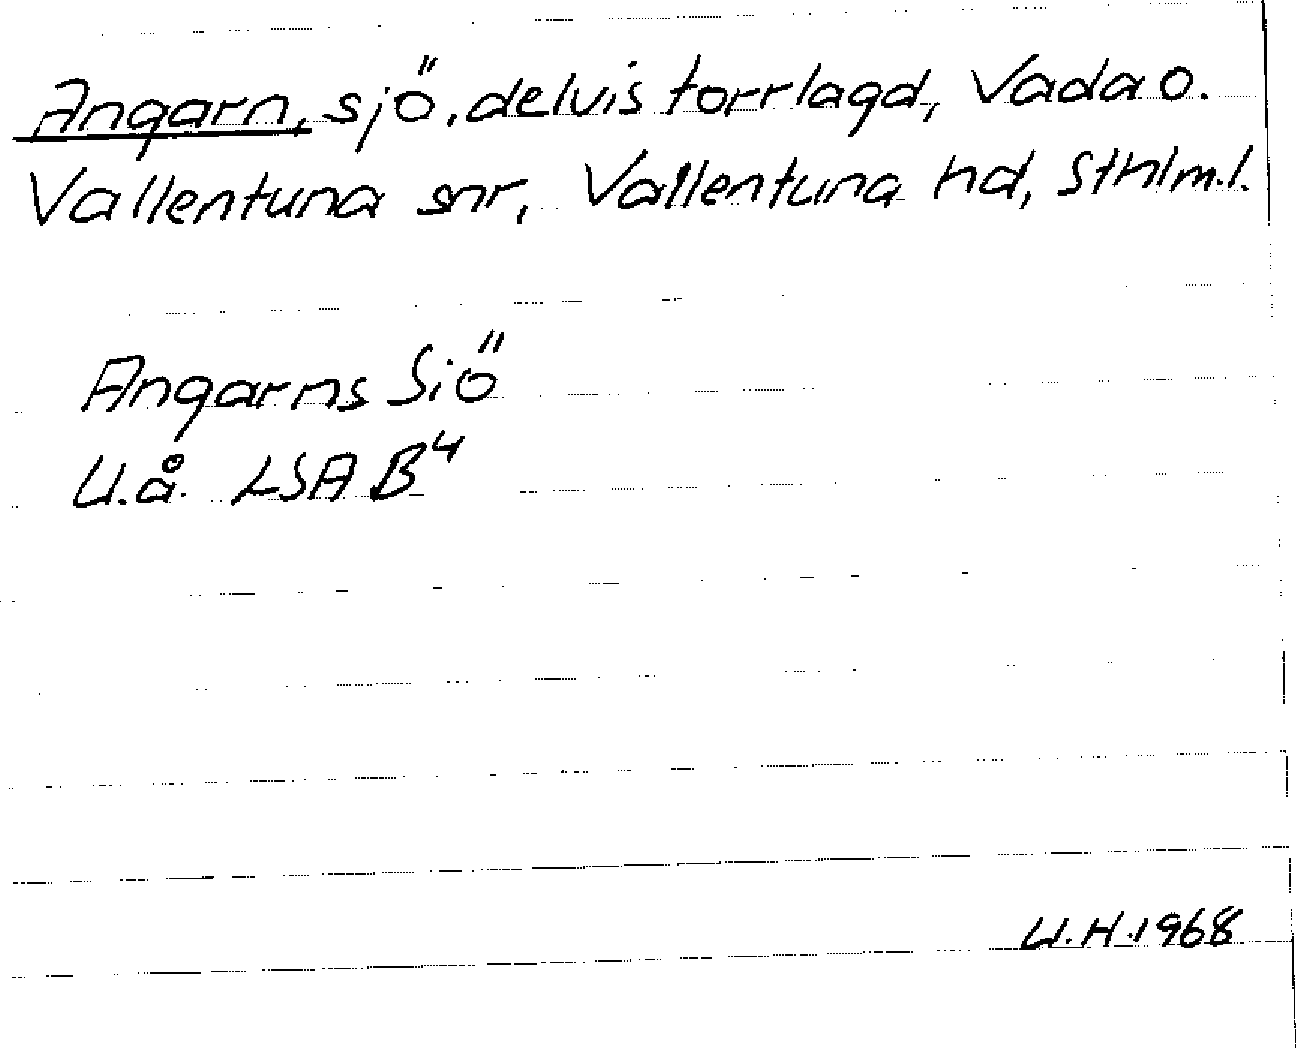 Angarn, sjö, delvis torrlagd, Vada o.
Vallentuna snr, Vallentuna hd, Sthlm.l.
Angarns Siö
U.å. LSA B4
U.H. 1968